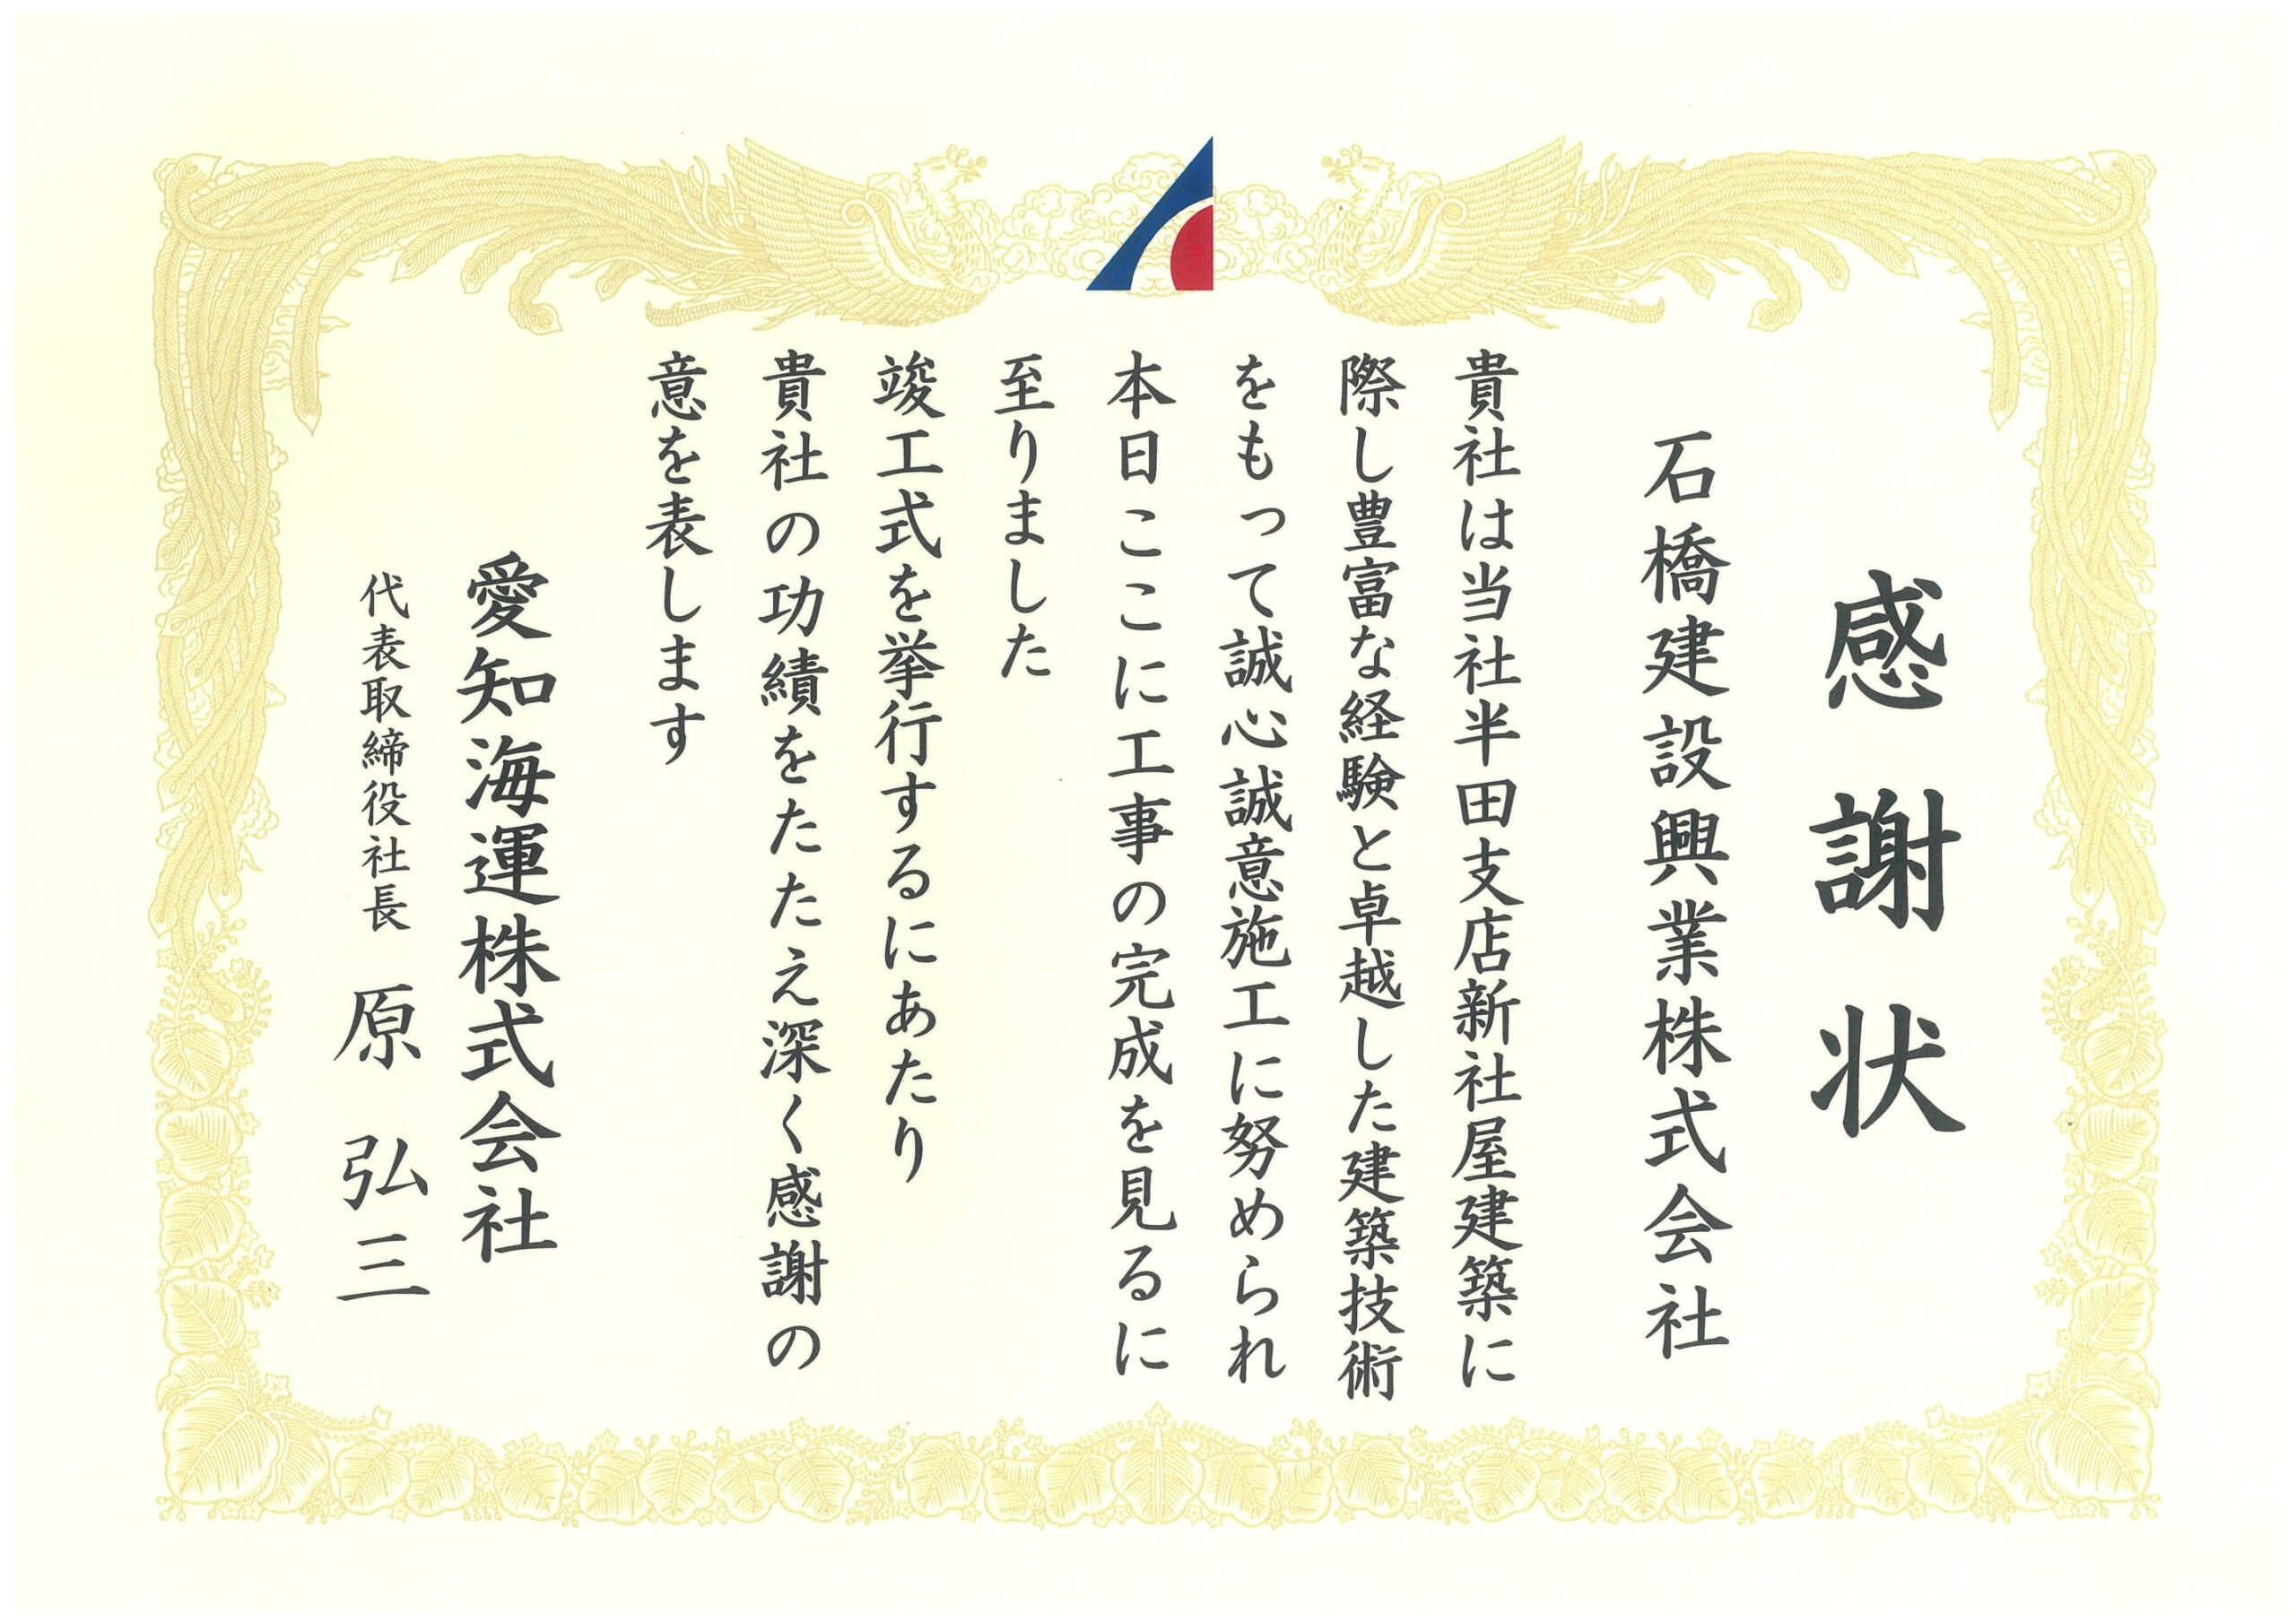 感謝状
石橋建設興業株式会社
貴社は当社半田支店新社屋建築に
際し豊富な経験と卓越した建築技術
をもって誠心誠意施工に努められ
本日ここに工事の完成を見るに
至りました
竣工式を挙行するにあたり
貴社の功績をたたえ深く感謝の
意を表します
愛知海運株式会社
代表取締役社長 原弘三